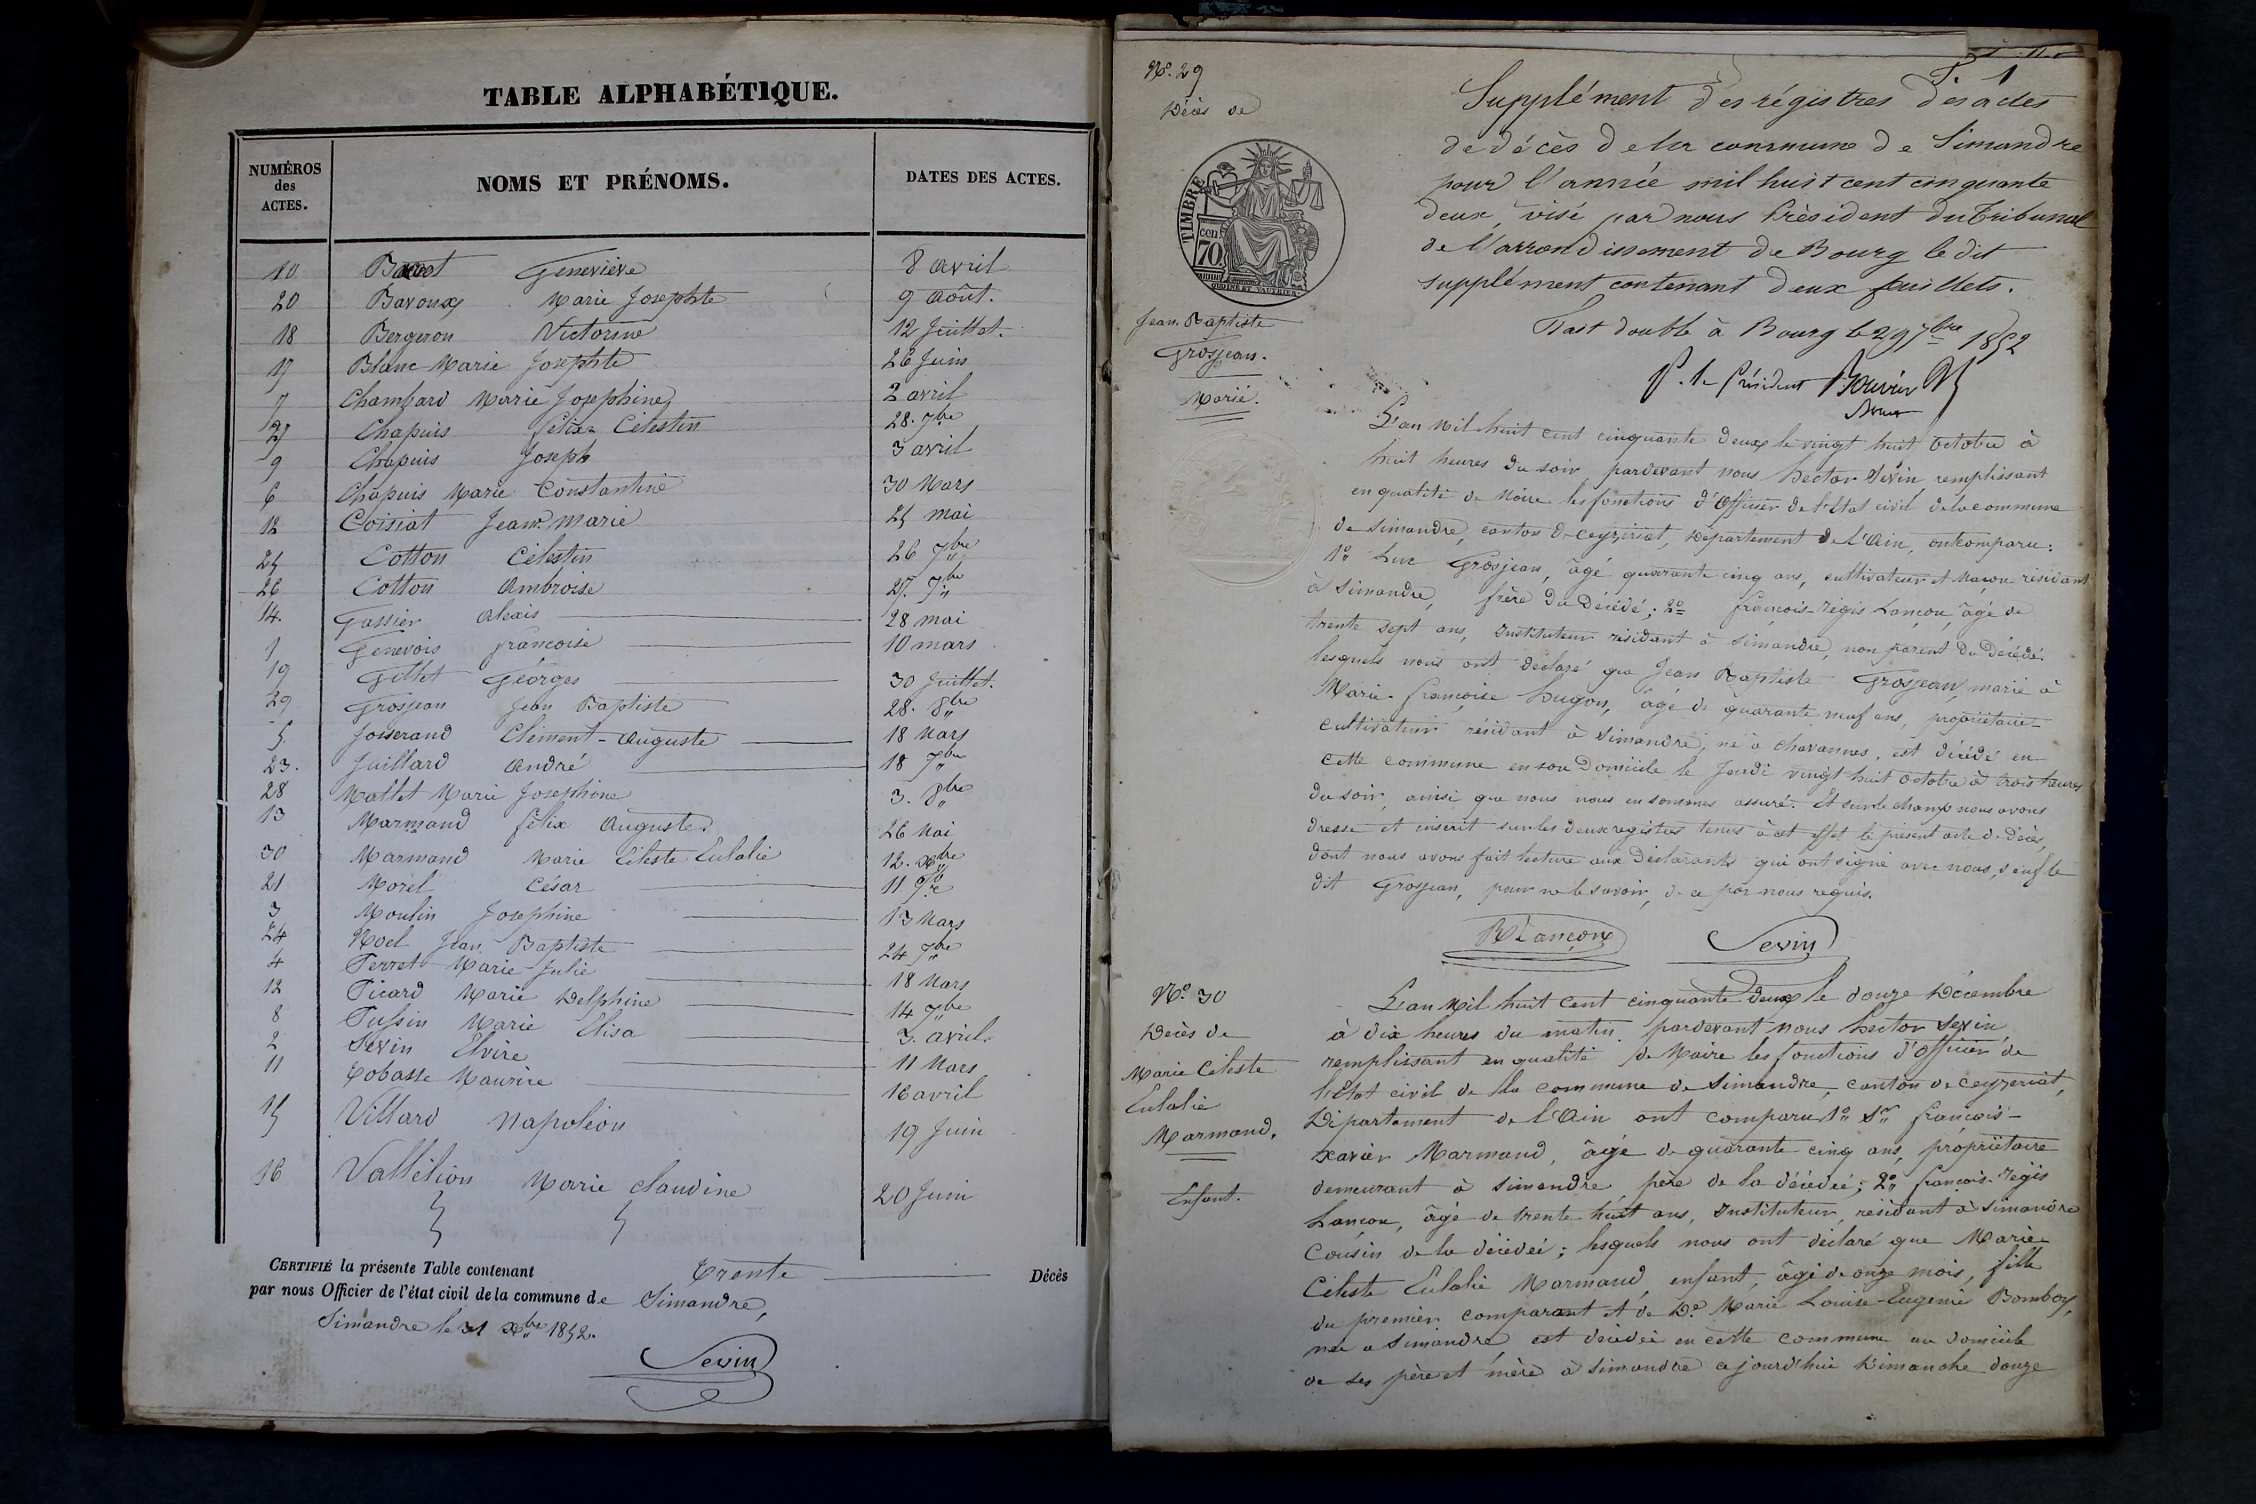 TABLE ALPHABÉTIQUE.
NUMÉROS des ACTES. NOMS ET PRÉNOMS. DATES DES ACTES.
10 Geneviève 8 avril
20 Bavoux Marie Josephte 9 Août.
18 Bergeron Victorine 12 Juillet.
17 Blanc Marie Josephte 26 Juin
7 Champard Marie Josephine 2 avril
27 Chapuis félix Célestin 28. 7bre
9 Chapuis Joseph 3 avril
6 Chapuis Marie Constantine 30 Mars
12 Coisiat Jean Marie 25 mai
25 Cotton Célestin 26 7bre
26 Cotton Ambroise 27. 7bre
14. Gassier Alexis 28 mai
1 Genevois françoise 10 mars
19 Gillet Géorges 30 Juillet.
29 Grosjean Jean Baptiste 28. 8bre
5. Josserand Clément-Auguste 18 Mars
23. Juillard André 18 7bre
28 Mallet Marie Josephine 3. 8bre
13 Marmand félix Auguste 26 Mai
30 Marmand Marie Céleste Eulalie 12. Xbre
21 Morel César 11 7bre
3 Moulin Josephine 13 Mars
24 Noel Jean Baptiste 24 7bre
4 Perret Marie Julie 18 Mars
12 Picard Marie Delphine 14 7bre
8 Marie Elisa 3. avril.
2 Sevin Elvire 11 Mars
11 Maurice 16 avril
15 Villard Napoléon 19 Juin
16 Vallélion Marie Claudine 20 Juin
CERTIFIÉ la présente Table contenant Trente Décès
par nous Officier de l'état civil de la commune de Simandre,
Simandre le 31 Xbre 1852.
Sevin
Nº. 29
Décès de
TIMBRE
70 cen.
Jean-Baptiste
Grosjean.
Marié.
F. 1
Supplément des régistres des actes
de décès de la commune de Simandre
pour l'année mil huit cent cinquante
deux, visé par nous Président du Tribunal
de l'arrondissement de Bourg le dit
supplément contenant deux feuillets.
Fait double à Bourg le 29 7bre 1852
P. le Président
L'an Mil huit cent cinquante deux le vingt huit Octobre à
huit heures du soir pardevant nous Hector Sevin, remplissant
en qualité de Maire les fonctions d'Officier de l'état civil de la commune
de Simandre, canton de Ceyzeriat, Département de l'Ain, ont comparu:
1º Luc Grosjean, âgé quarante cinq ans, cultivateur et Maçon résidant
à Simandre, frère du Décédé; 2º françois-régis Lançon, âgé de
trente sept ans, Instituteur résidant à Simandre, non parent du Décédé.
lesquels nous ont déclaré que Jean Baptiste Grosjean, marié à
Marie-françoise Hugon, âgé de quarante neuf ans, propriétaire-
cultivateur résidant à Simandre, né à Chavannes, est décédé en
cette commune en son Domicile le Jeudi vingt huit Octobre à trois heures
du soir, ainsi que nous nous en sommes assuré. Et sur le champ nous avons
dressé et inscrit sur les deux registres tenus à cet effet le présent acte de Décès,
dont nous avons fait lecture aux Déclarants qui ont signé avec nous, sauf le
dit Grosjean, pour ne le savoir, de ce par nous requis.
R Lançon Sevin
Nº. 30
Décès de
Marie Céleste
Eulalie
Marmand.
Enfant.
L'an Mil huit Cent cinquante deux le douze Décembre
à dix heures du matin. pardevant nous Hector Sevin
remplissant en qualité de Maire les fonctions d'Officier de
l'état civil de la commune de Simandre, canton de Ceyzeriat,
Département de l'Ain ont comparu 1º Sr françois-
Xavier Marmand, âgé de quarante cinq ans, propriétaire
demeurant à Simandre père de la décédée; 2º françois-régis
Lançon, âgé de trente huit ans, Instituteur, résidant à Simandre
Cousin de la décédée; lesquels nous ont déclaré que Marie
Céleste Eulalie Marmand, enfant, âgé de onze mois, fille
du premier comparant et de De Marie Louise-Eugénie Bomboy,
née à Simandre, est décédée en cette commune au domicile
de ses père et mère à Simandre cejourd'hui Dimanche douze